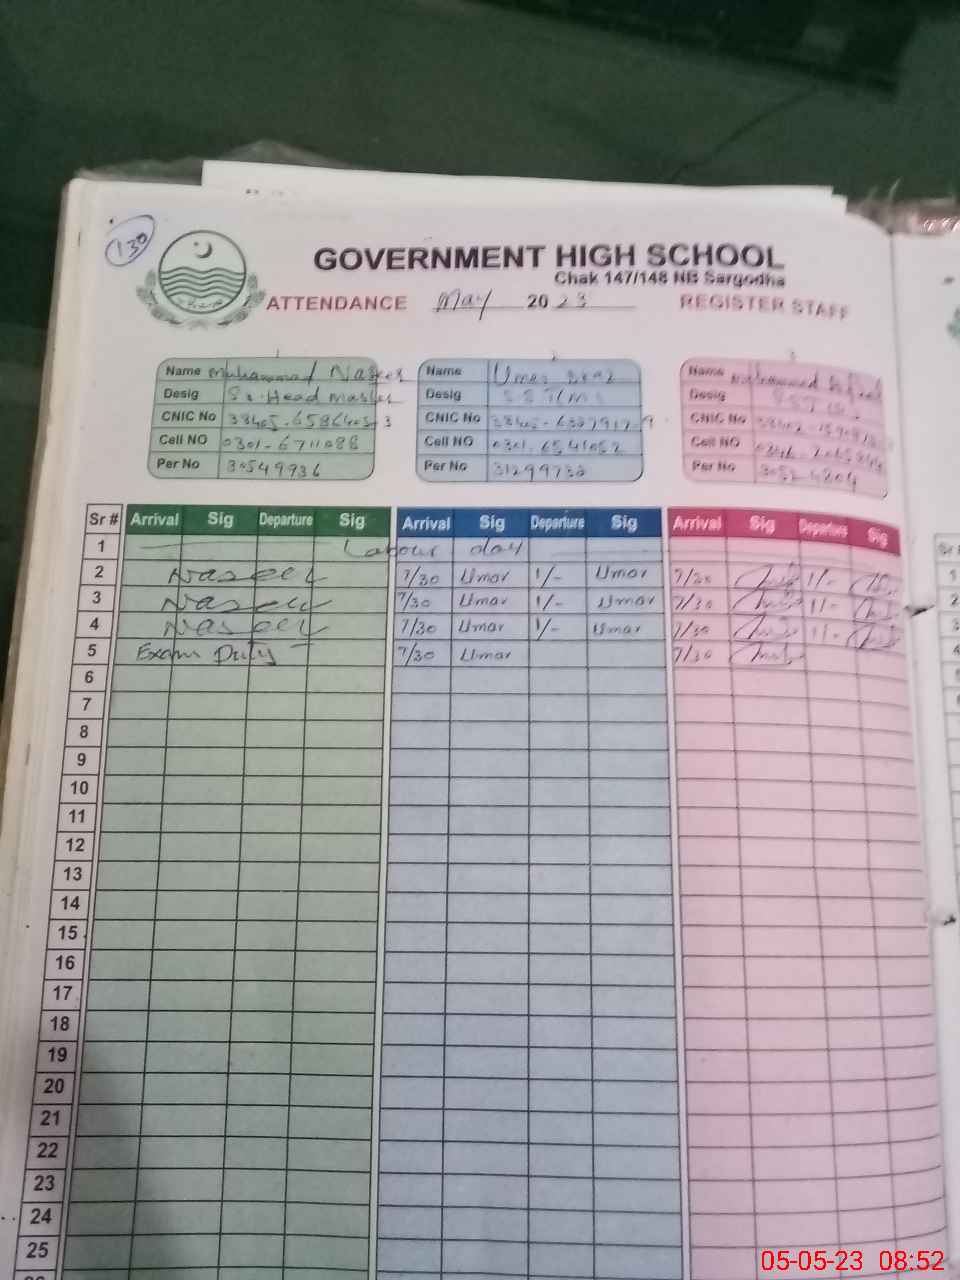 130
GOVERNMENT HIGH SCHOOL
Chak 147/148 NB Sargodha
ATTENDANCE May 2023 REGISTER STAFF
1 2 3
Name Muhammad Naseer Name Umer Name Muhammad
Desig Sr. Head Master Desig Desig
CNIC No CNIC No CNIC No
Cell NO 0301-6711088 Cell NO 0301-6541052 Cell NO
Per No 30549936 Per No 31299732 Per No
Sr # Arrival Sig Departure Sig Arrival Sig Departure Sig Arrival Sig Departure Sig
1 Labour day
2 Naseer 7/30 Umar 1/- Umar 7/30 1/-
3 Naseer 7/30 Umar 1/- Umar 7/30 1/-
4 Naseer 7/30 Umar 1/- Umar 7/30 1/-
5 Exam Duty 7/30 Umar 7/30
6
7
8
9
10
11
12
13
14
15
16
17
18
19
20
21
22
23
24
25
05-05-23 08:52